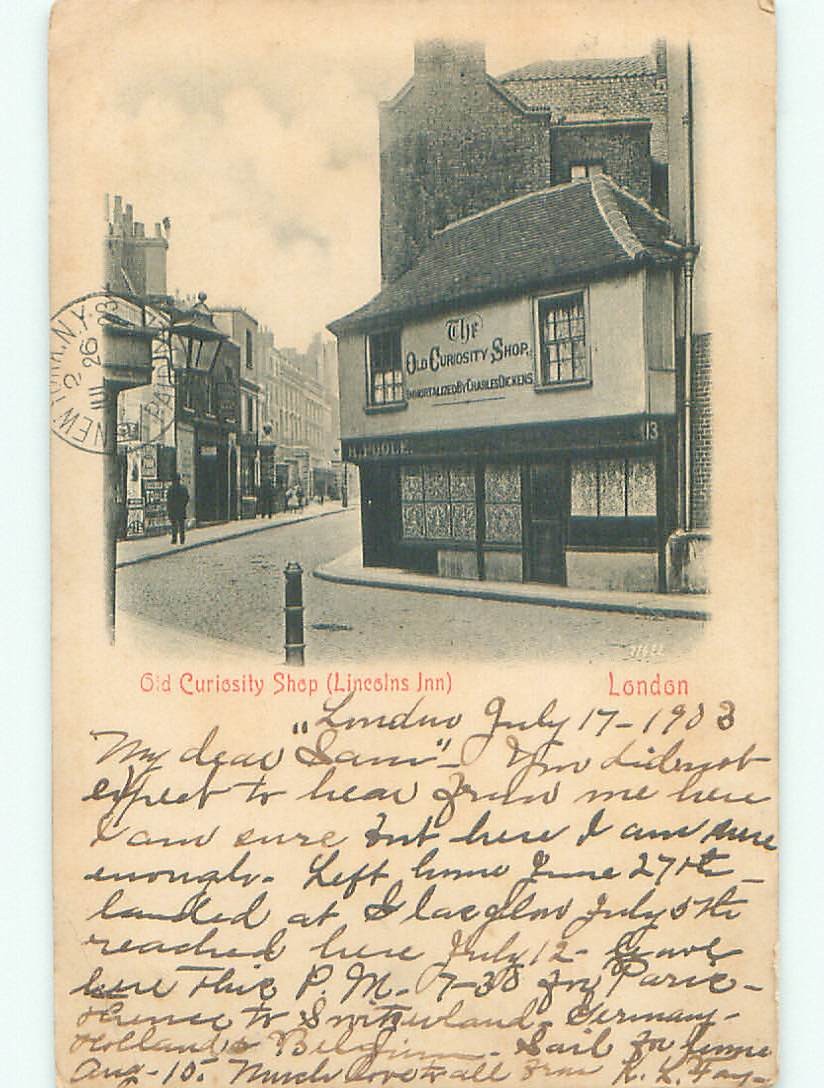 The
OLD CURIOSITY SHOP,
IMMORTALIZED BY CHARLES DICKENS
H. POOLE.
13
NEW YORK, N.Y.
26
Old Curiosity Shop (Lincolns Inn)
London
London July 17-1903
My dear "Sam"- You did not
expect to hear from me here
I am sure but here I am sure
enough. Left home June 27th -
landed at Glasglow July 5th
reached here July 12- Leave
here this P. M. 7-30 for Paris-
thence to Switzerland- Germany-
Holland & Belgium - Sail for home
Aug-15. Much love to all from